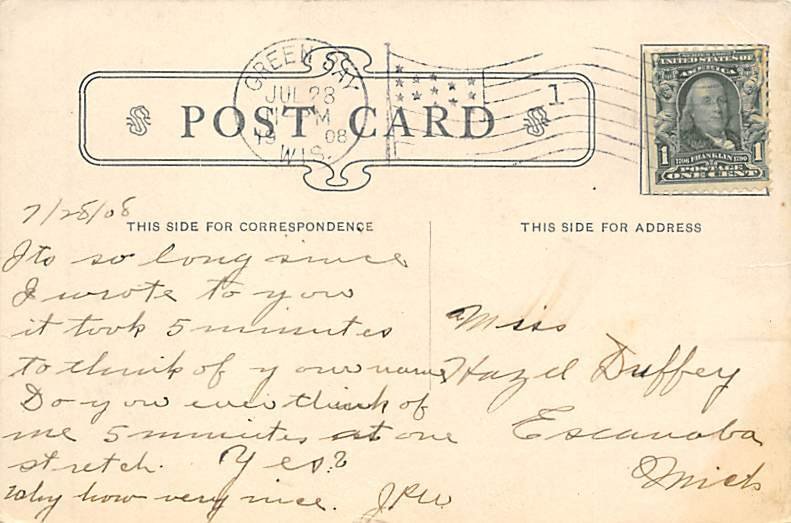 GREEN BAY
JUL 28
M
19 08
WIS.
1
POST CARD
UNITED STATES OF
AMERICA
1 1706 FRANKLIN 1790 1
POSTAGE
ONE CENT
7/28/08
THIS SIDE FOR CORRESPONDENCE
THIS SIDE FOR ADDRESS
Its so long since
I wrote to you
it took 5 minutes
to think of your name
Do you ever think of
me 5 minutes at one
stretch. Yes?
Why how very nice. J.P.W.
Miss
Hazel Duffey
Escanaba
Mich